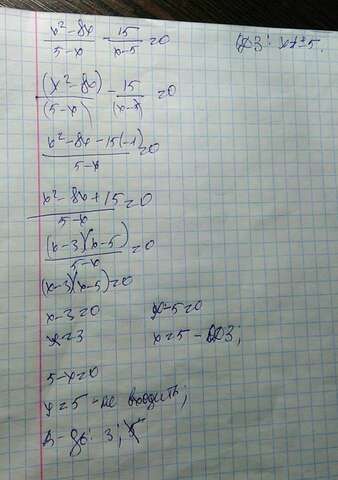 (x²-8x)/(5-x) - 15/(x-5) = 0 ОДЗ: x≠5.
(x²-8x)/(5-x) - 15/(x-5) = 0
(x²-8x-15(-1))/(5-x) = 0
(x²-8x+15)/(5-x) = 0
(x-3)(x-5)/(5-x) = 0
(x-3)(x-5)=0
x-3=0 x-5=0
x=3 x=5 - ОДЗ;
5-x=0
x=5 - не входить;
В-дь: 3;